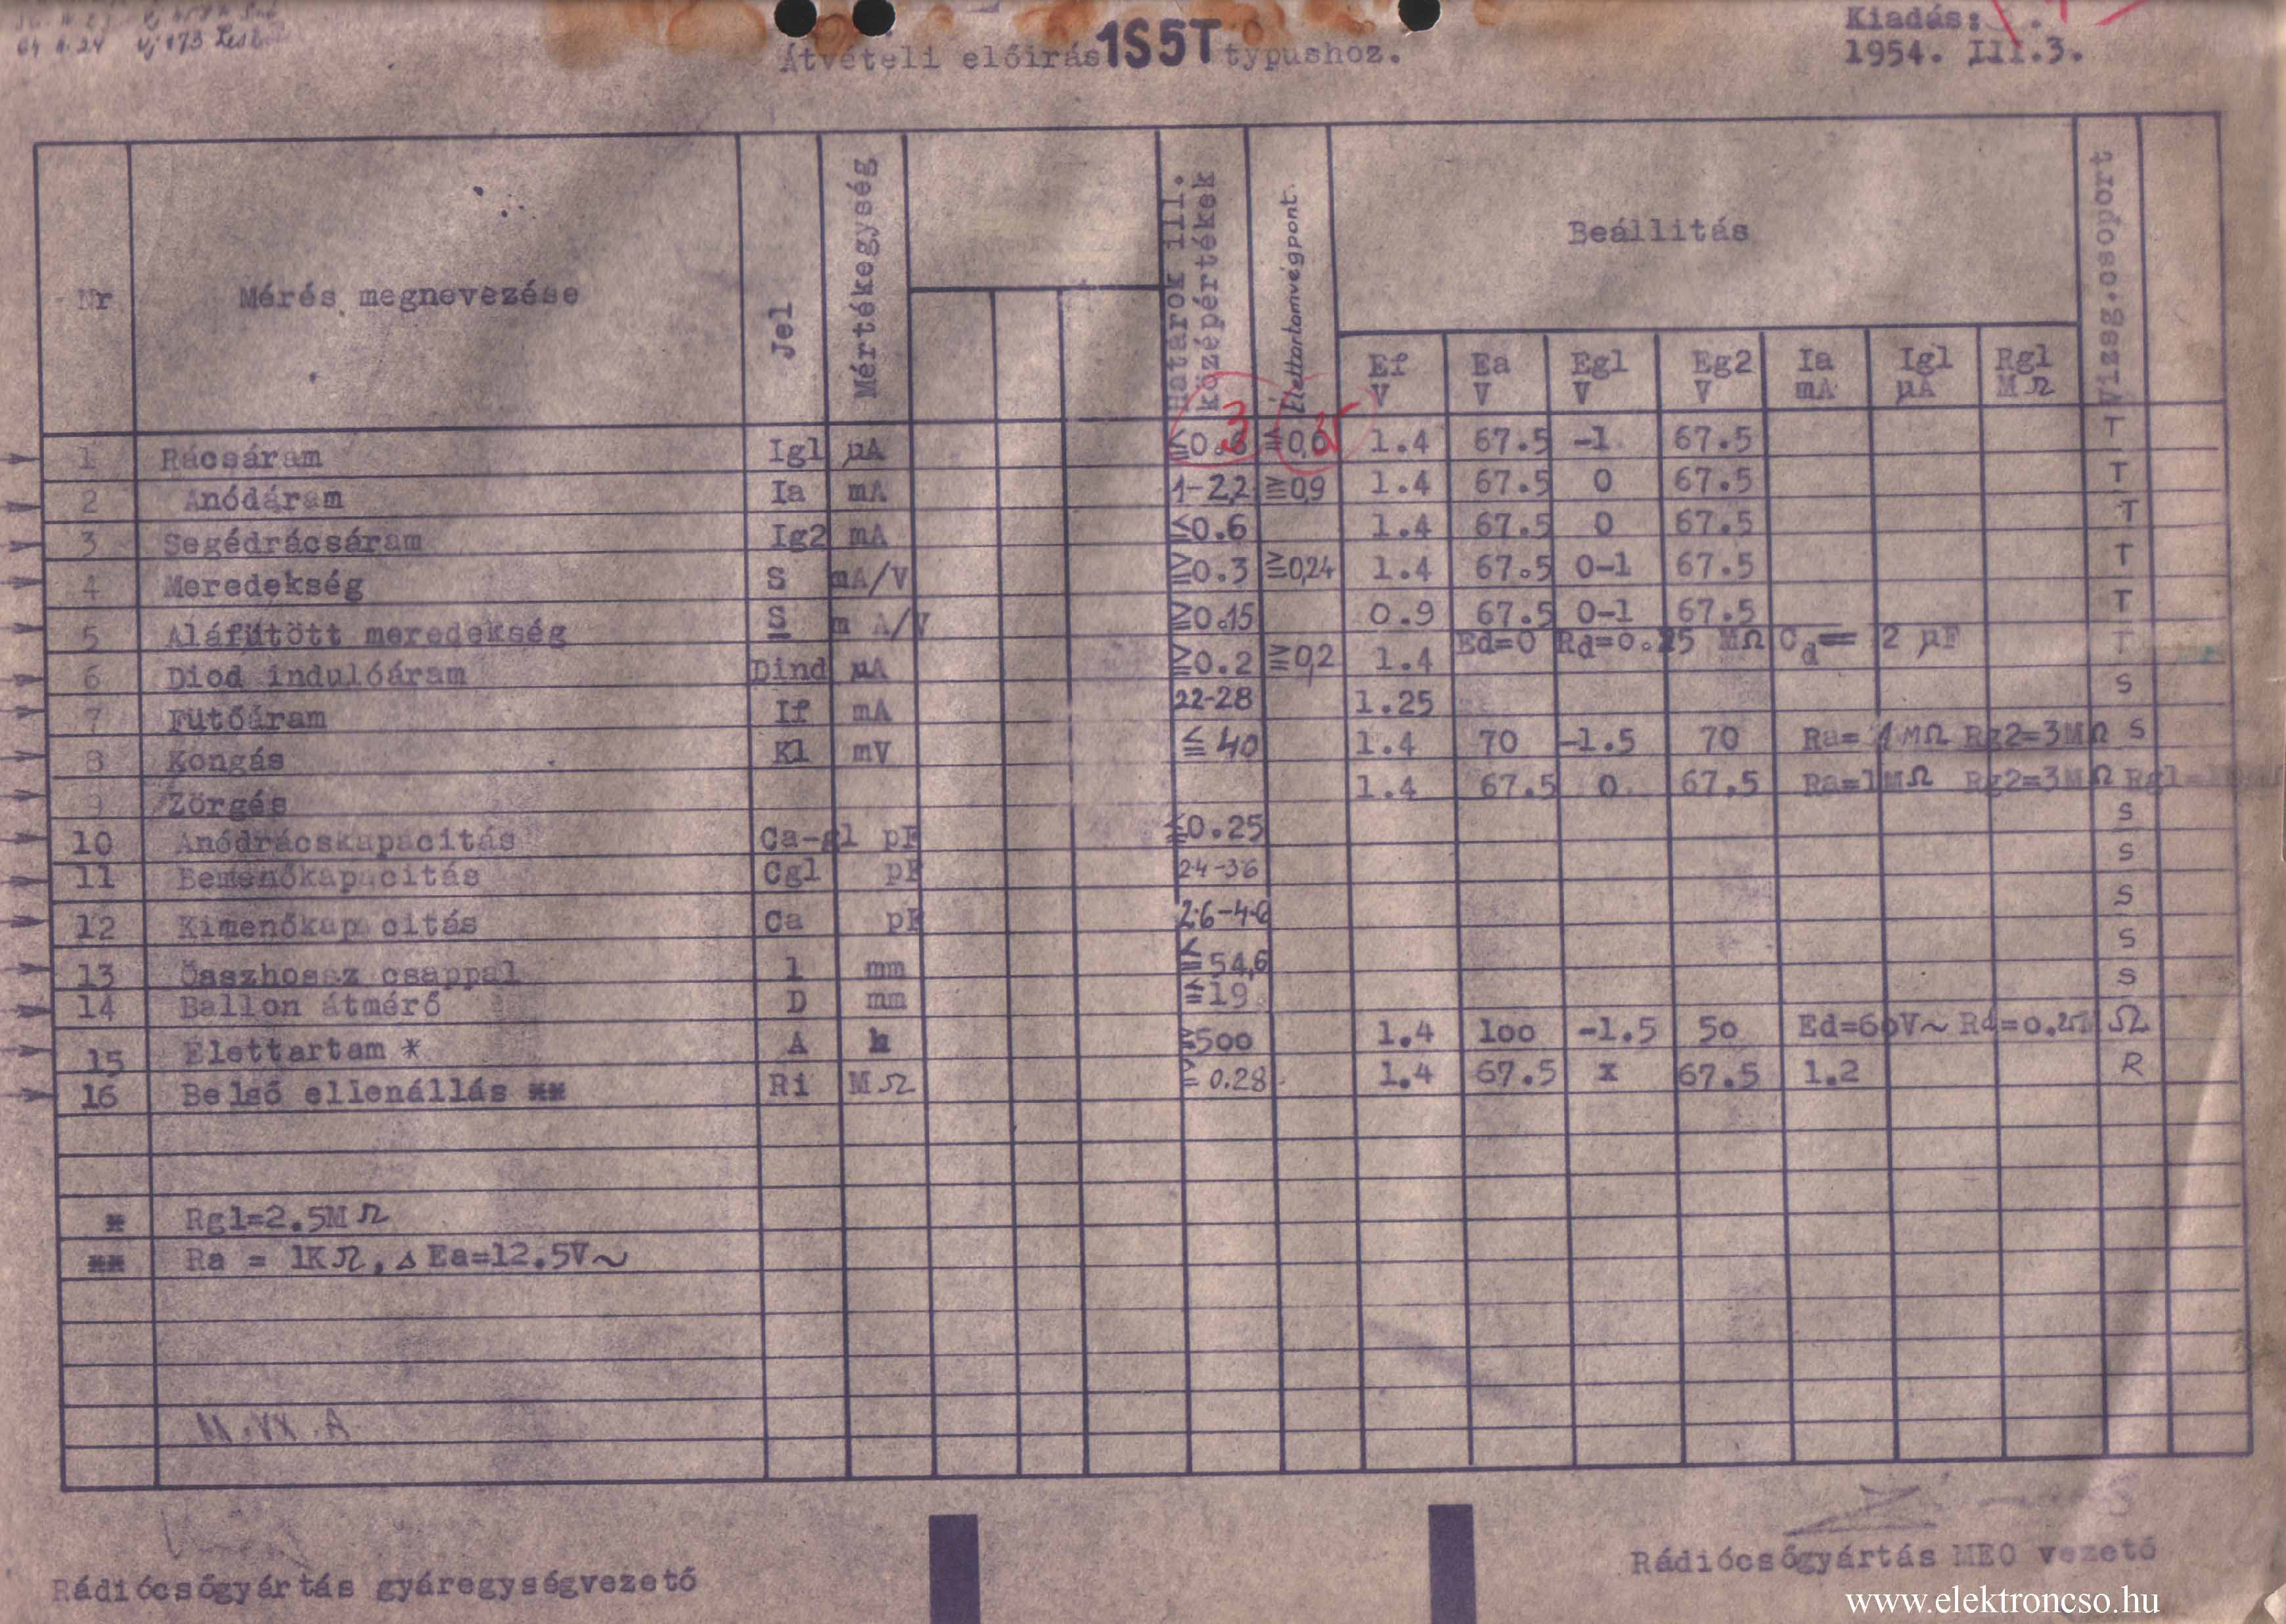 Átvételi előirás 1S5T typushoz.
Kiadás:
1954. III.3.
Nr
Mérés megnevezése
Jel
Mértékegység
Határok ill. középértékek
Élettartamvégpont.
Beállitás
Vizsg.csoport
Ef V Ea V Egl V Eg2 V Ia mA Igl µA Rgl MΩ
1 Rácsáram Igl µA ≦0. 3 ≦0,6 1.4 67.5 -1 67.5 T
2 Anódáram Ia mA 1-2,2 ≧0,9 1.4 67.5 0 67.5 T
3 Segédrácsáram Ig2 mA ≦0.6 1.4 67.5 0 67.5 T
4 Meredekség S mA/V ≧0.3 ≧0,24 1.4 67.5 0-1 67.5 T
5 Aláfütött meredekség S m A/V ≧0.15 0.9 67.5 0-1 67.5 T
6 Diod indulóáram Dind µA ≧0.2 ≧0,2 1.4 Ed=0 Rd=0. 5 MΩ Cd= 2 µF T
7 Fütőáram If mA 22-28 1.25 S
8 Kongás Kl mV ≦ 40 1.4 70 -1.5 70 Ra= 1 MΩ Rg2=3MΩ S
9 Zörgés 1.4 67.5 0 67.5 Ra=1MΩ Rg2=3MΩ Rgl=
10 Anódrácskapacitás Ca-gl pF ≦0.25 S
11 Bemenőkapacitás Cgl pF 24-36 S
12 Kimenőkapacitás Ca pF 2.6-4.6 S
13 Összhossz csappal l mm ≦54,6 S
14 Ballon átmérő D mm ≦19 S
15 Élettartam * A h ≧500 1.4 100 -1.5 50 Ed=60V~ Rd=0. Ω
16 Belső ellenállás ** Ri MΩ ≧ 0.28 1.4 67.5 x 67.5 1.2 R
* Rgl=2.5MΩ
** Ra = 1KΩ, Δ Ea=12.5V~
Rádiócsőgyártás gyáregységvezető
Rádiócsőgyártás MEO vezető
www.elektroncso.hu